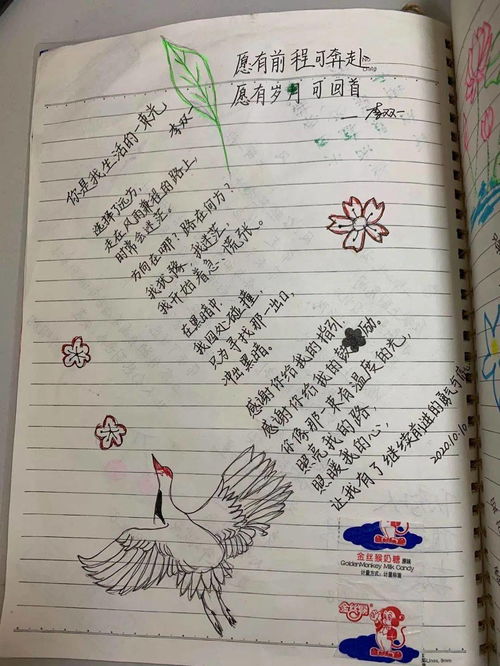 愿有前程可奔赴
愿有岁月可回首
— 李双一
你是我生活的一束光
李双一
选择了远方,
走在风雨兼程的路上,
时常会迷茫。
方向在哪,路在何方?
我犹豫,我迷茫,
我开始着急、慌张。
在黑暗中,
我四处碰撞,
只为寻找那一出口,
冲出黑暗。
感谢你给我的指引,
感谢你给我的鼓励。
你像那一束有温度的光,
照亮我的路,
照暖我的心,
让我有了继续前进的勇气与
2020.10.10
金丝猴奶糖 原味
GoldenMonkey Milk Candy
计量方式:计量标准
金丝猴
Lines, 9mm